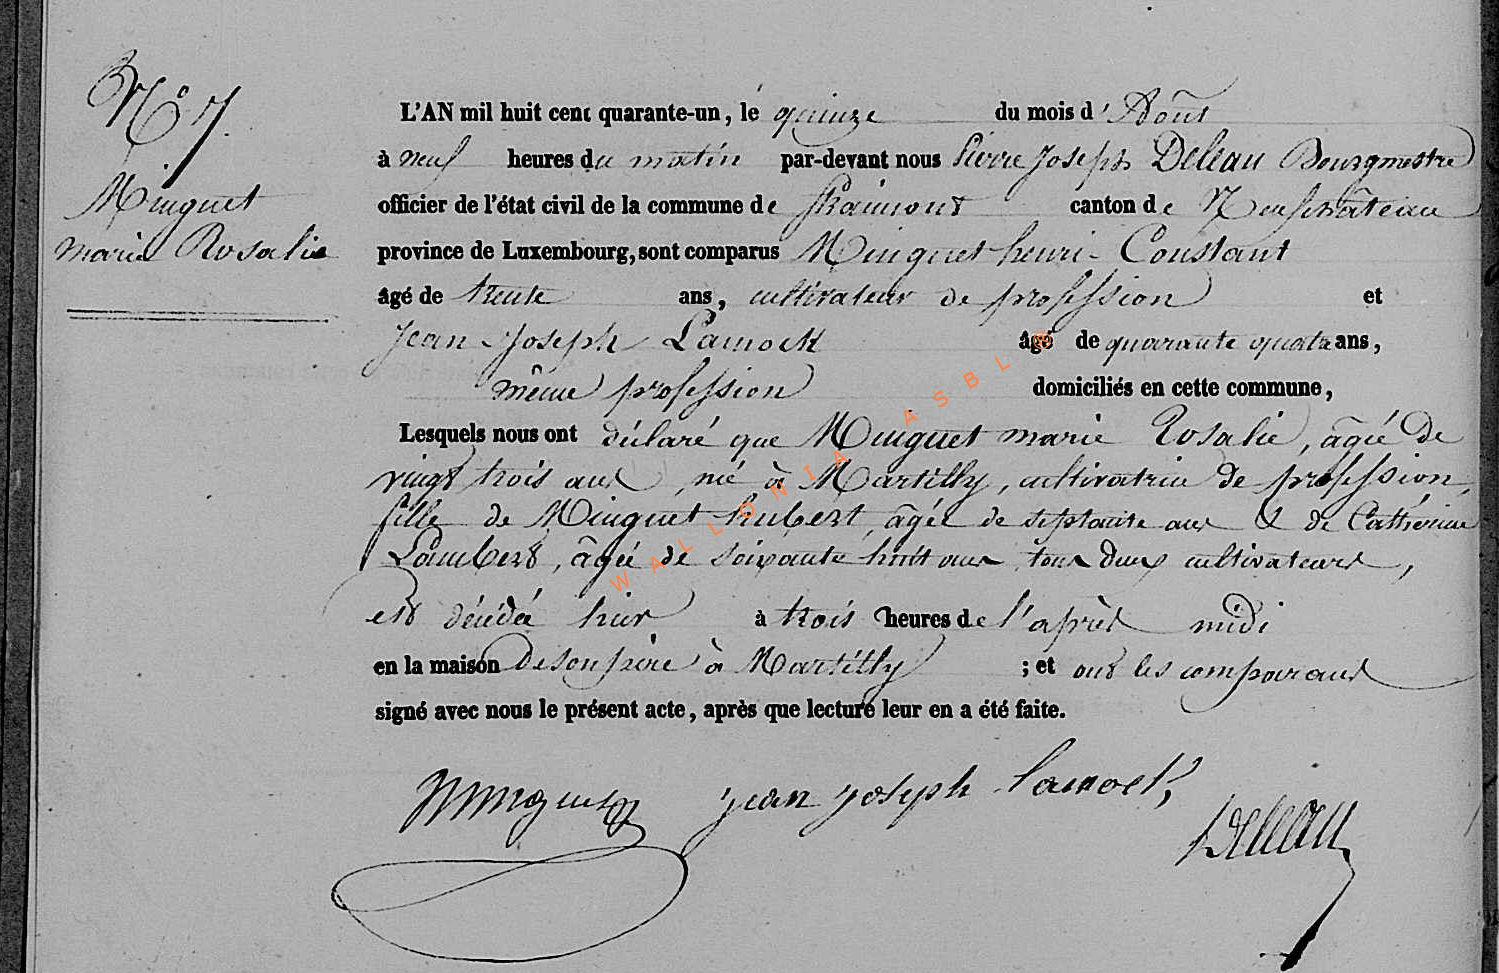 N.º 7.
Minguet
marie Rosalie
L'AN mil huit cent quarante-un, le quinze du mois d'Août
à neuf heures du matin par-devant nous Pierre Joseph Deleau Bourgmestre
officier de l'état civil de la commune de Straimont canton de Neufchâteau
province de Luxembourg, sont comparus Minguet henri-Constant
âgé de trente ans, cultivateur de profession et
Jean-Joseph Lamock âgé de quarante quatre ans,
même profession domiciliés en cette commune,
Lesquels nous ont déclaré que Minguet marie Rosalie, âgée de
vingt trois ans, né à Martilly, cultivatrice de profession,
fille de Minguet hubert, âgée de septante ans & de Catherine
Lambert, âgée de soixante huit ans tous deux cultivateurs,
est décédée hier à trois heures de l'après midi
en la maison de son père à Martilly ; et ont les comparans
signé avec nous le présent acte, après que lecture leur en a été faite.
Minguet jean joseph lamock,
Deleau
WALLONIA ASBL